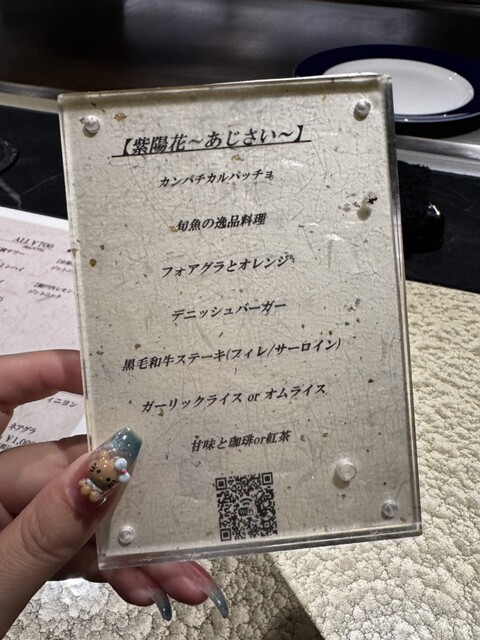 【紫陽花～あじさい～】
カンパチカルパッチョ
旬魚の逸品料理
フォアグラとオレンジ
デニッシュバーガー
黒毛和牛ステーキ(フィレ/サーロイン)
ガーリックライス or オムライス
甘味と珈琲or紅茶